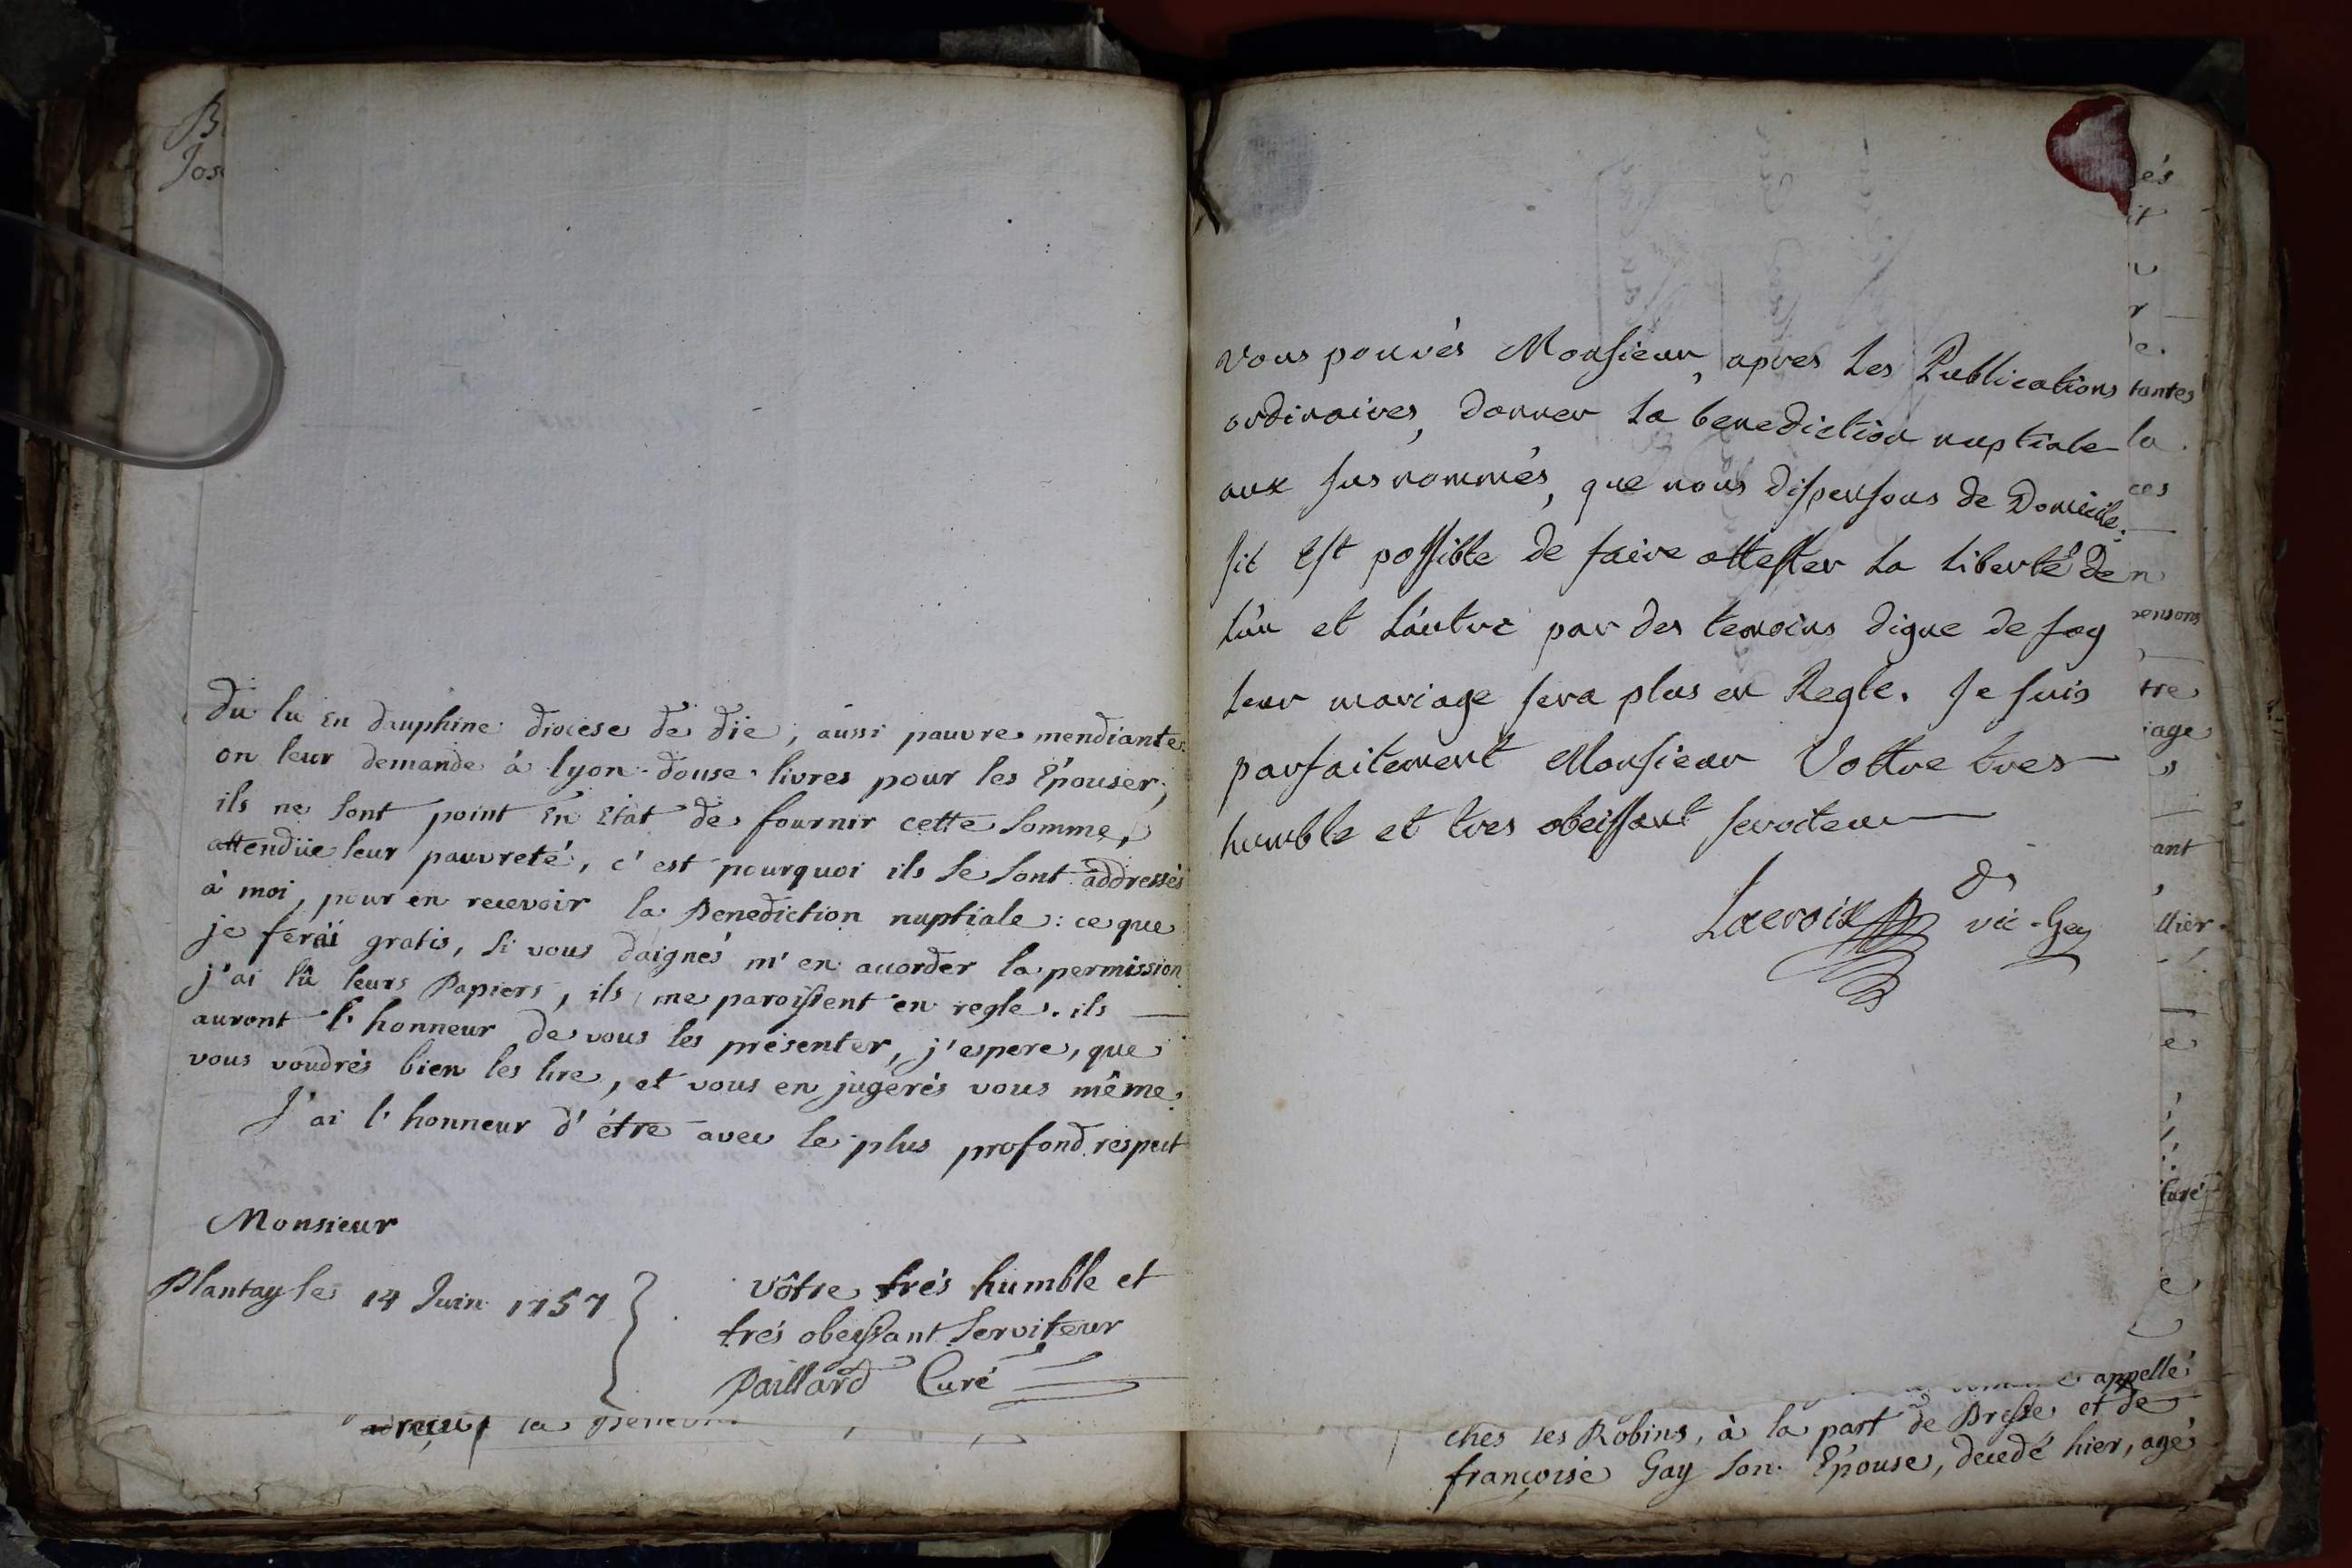 B
Jos
du lu en dauphiné diocèse de die, aussi pauvre mendiante
on leur demande à lyon douse livres pour les Epouser,
ils ne sont point En Etat de fournir cette somme,
attendüe leur pauvreté, c'est pourquoi ils se sont addressés
à moi, pour en recevoir la Benediction nuptiale : ce que
je ferai gratis, si vous daignés m'en accorder la permission
j'ai lû leurs Papiers, ils me paroissent en regle. ils
auront l'honneur de vous les présenter, j'espere, que
vous voudrés bien les lire, et vous en jugerés vous même.
J'ai l'honneur d'être avec le plus profond respect
Monsieur
Plantay le 14 Juin 1757
vôtre trés humble et
trés obeissant serviteur
Paillard Curé
reçu la
Vous pouvés Monsieur, apres Les Publications
ordinaires, donner La benediction nuptiale
aux susnommés, que nous dispensons de Domicile.
sil Est possible de faire attester La Liberté de
L'un et L'autre par des temoins digne de foy
Leur mariage sera plus en Regle. Je suis
parfaitement Monsieur Vottre tres
humble et tres obeissant serviteur
Lacroix vic-Gen
és
it
r
e.
tantes
la
ces
n
pensons
tre
iage
ant
llier.
e
Curé
e
appellé
chés les Robins, à la part de Bresse et de
françoise Gay son Epouse, decedé hier, agé